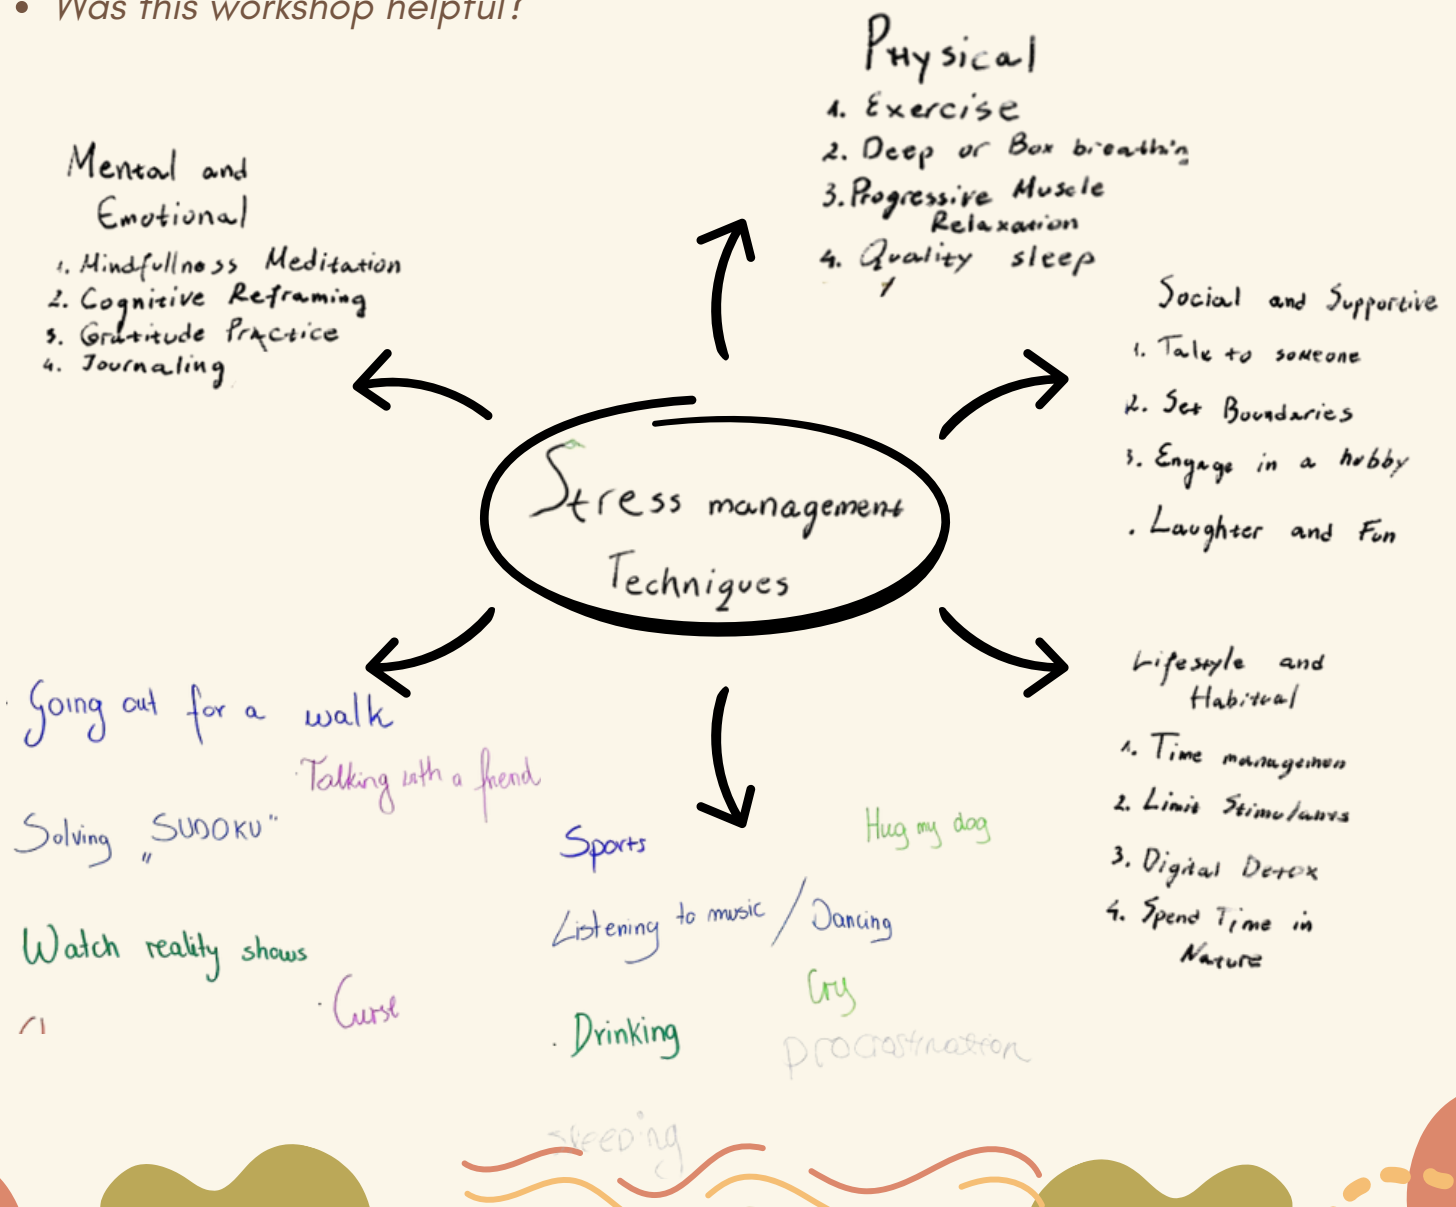 • Was this workshop helpful?
Physical
1. Exercise
2. Deep or Box breathing
3. Progressive Muscle
Relaxation
4. Quality sleep
Mental and
Emotional
1. Mindfullness Meditation
2. Cognitive Reframing
3. Gratitude Practice
4. Journaling
Social and Supportive
1. Talk to someone
2. Set Boundaries
3. Engage in a hobby
. Laughter and Fun
Stress management
Techniques
Lifestyle and
Habitual
1. Time managemen
2. Limit Stimulants
3. Digital Detox
4. Spend Time in
Nature
· Going out for a walk
· Talking with a friend
Solving „SUDOKU"
Watch reality shows
· Curse
Sports
Hug my dog
Listening to music / Dancing
Cry
. Drinking
procrastination
sleeping